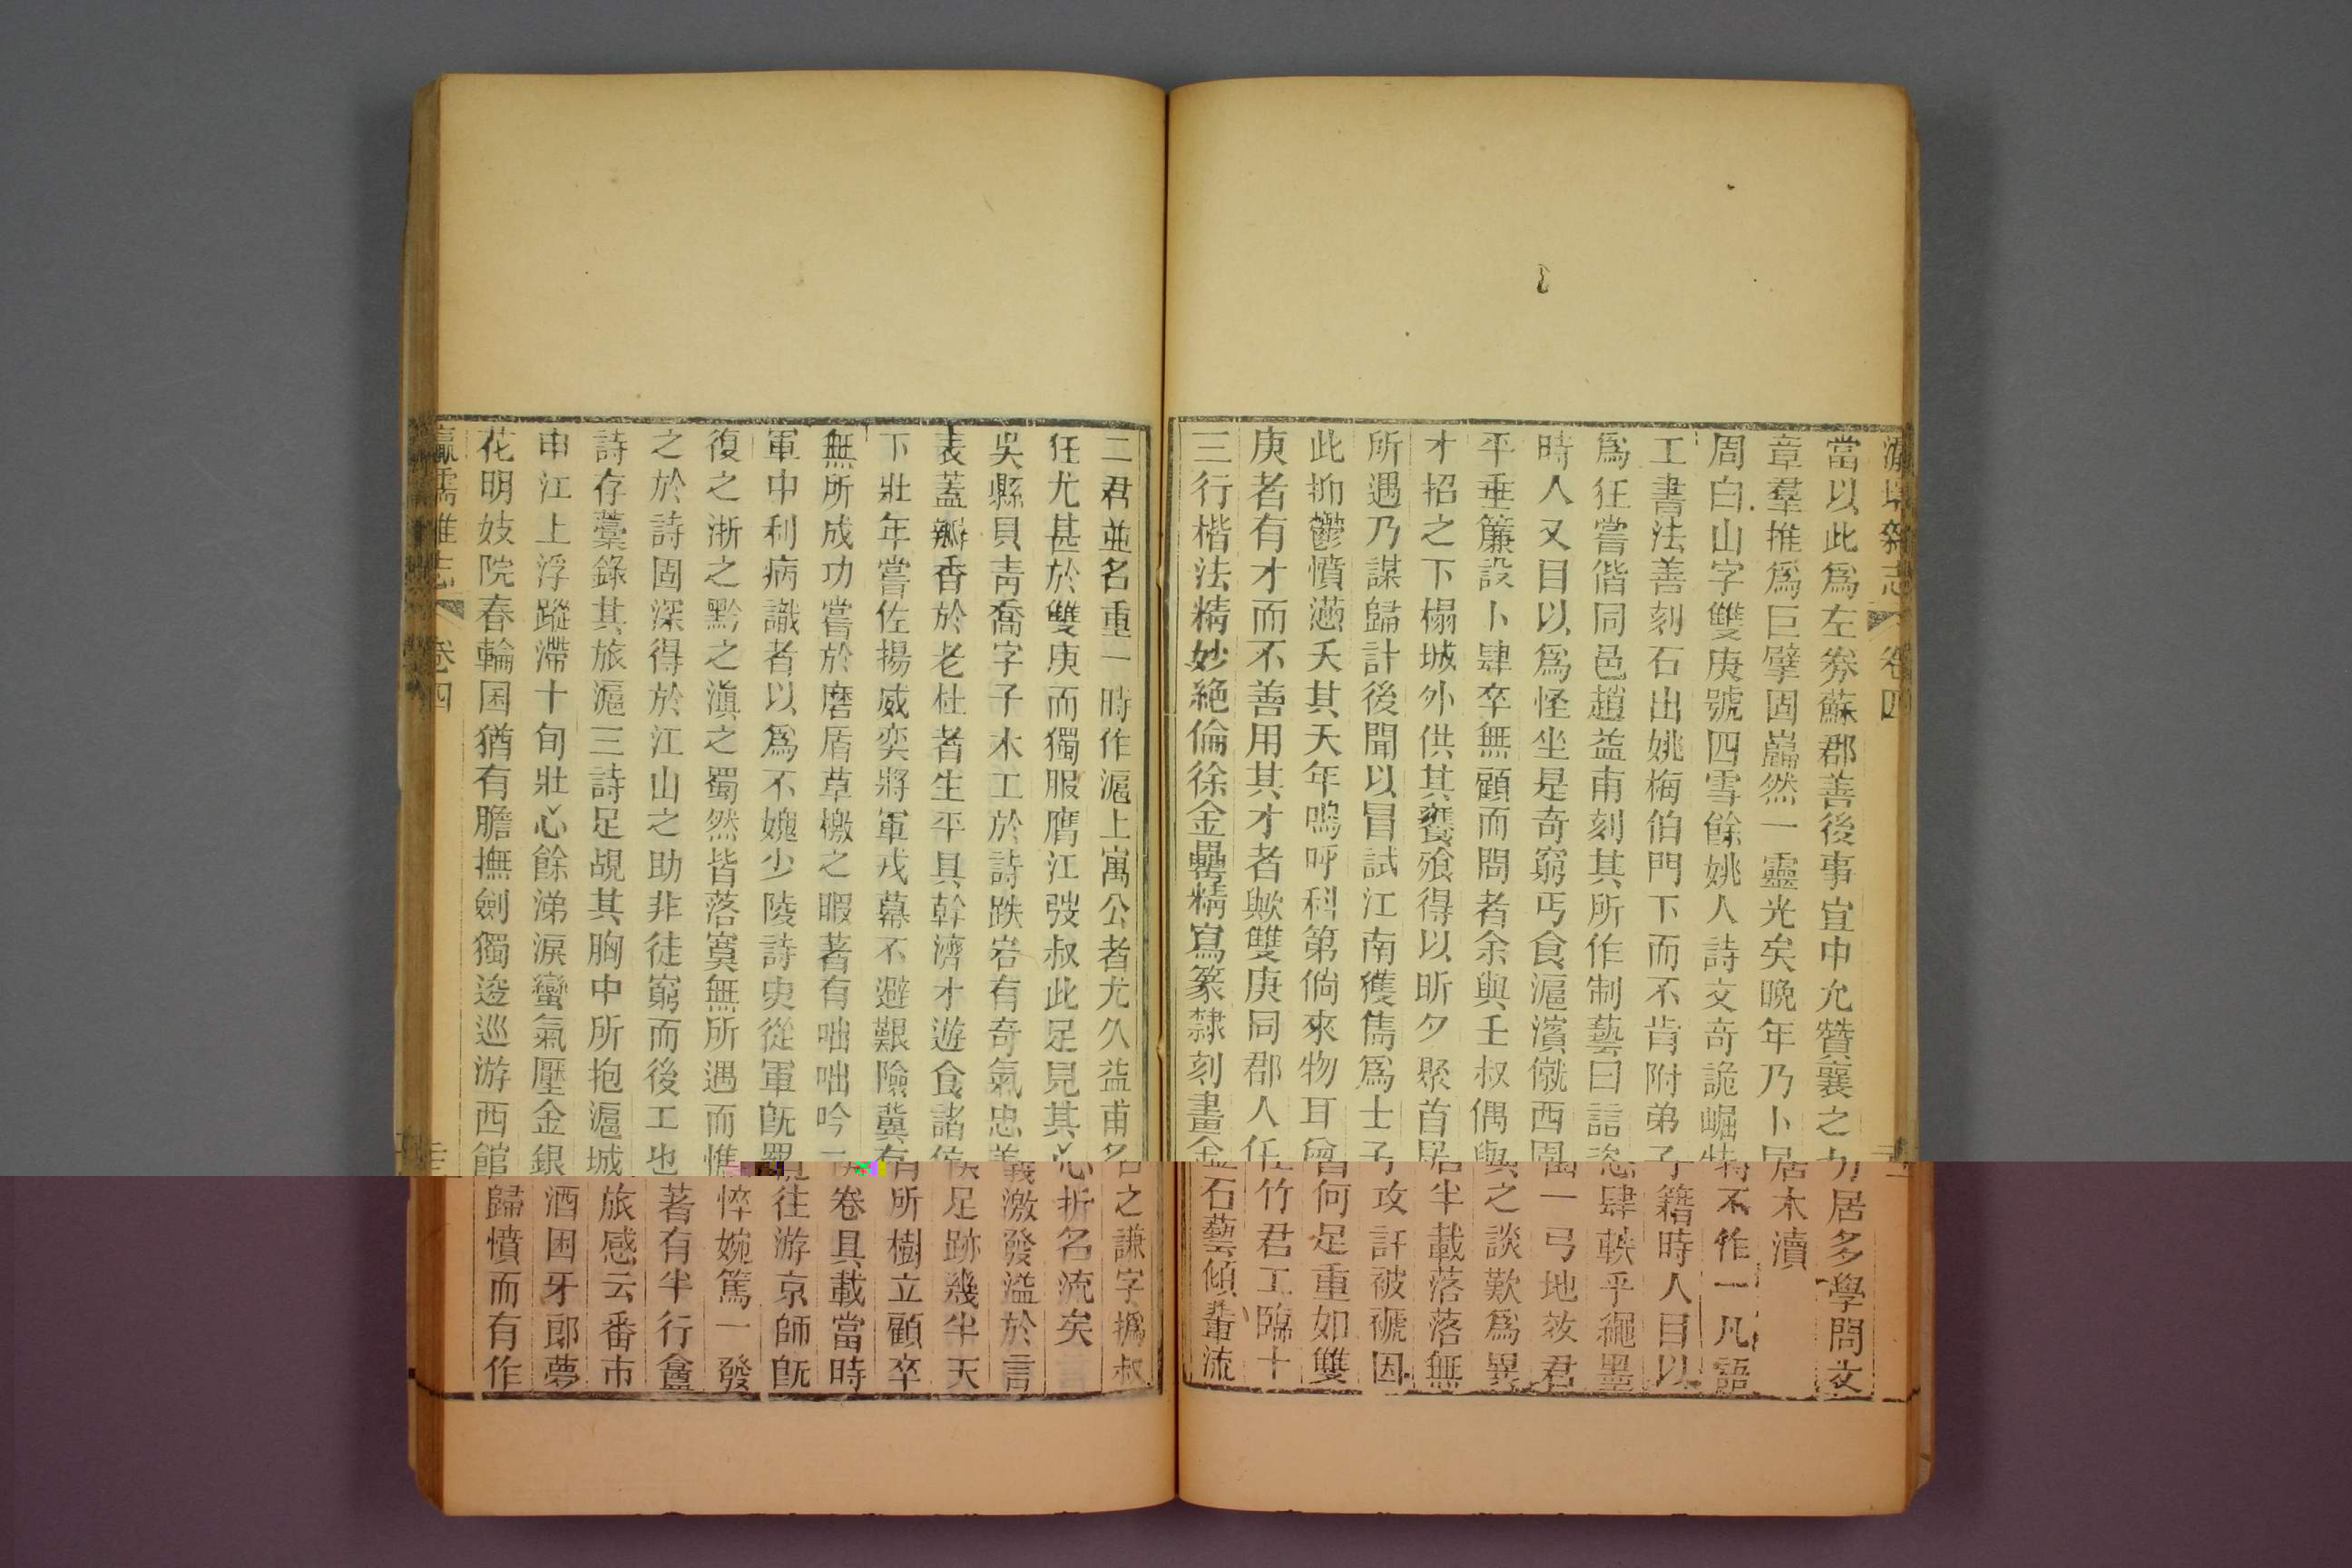 瀛壖雜志 卷四
當以此爲左劵蘇郡善後事宜中允贊襄之力居多學問文
章羣推爲巨擘固巋然一靈光矣晚年乃卜居木瀆
周白山字雙庚號四雪餘姚人詩文奇詭崛特不作一凡語
工書法善刻石出姚梅伯門下而不肯附弟子籍時人目以
爲狂嘗偕同邑趙益甫刻其所作制藝曰詁恣肆軼乎繩墨
時人又目以爲怪坐是奇窮丐食滬濱僦西園一弓地效君
平垂簾設卜肆卒無顧而問者余與壬叔偶與之談歎爲異
才招之下榻城外供其饔飱得以昕夕聚首居半載落落無
所遇乃謀歸計後聞以冒試江南獲雋爲士子攻訐被褫因
此抑鬱憤懣夭其天年嗚呼科第倘來物耳曾何足重如雙
庚者有才而不善用其才者歟雙庚同郡人任竹君工臨十
三行楷法精妙絕倫徐金罍精寫篆隸刻畫金石藝傾輩流
二君並名重一時作滬上寓公者尤久益甫名之謙字撝叔
狂尤甚於雙庚而獨服膺江弢叔此足見其心折名流矣
吳縣貝青喬字子木工於詩跌宕有奇氣忠義激發溢於言
表蓋瓣香於老杜者生平具幹濟才遊食諸侯足跡幾半天
下壯年嘗佐揚威奕將軍戎幕不避艱險冀有所樹立顧卒
無所成功嘗於磨盾草檄之暇著有咄咄吟二卷具載當時
軍中利病識者以爲不媿少陵詩史從軍旣罷往游京師旣
復之浙之黔之滇之蜀然皆落寞無所遇而憔悴婉篤一發
之於詩固深得於江山之助非徒窮而後工也著有半行盦
詩存藁錄其旅滬三詩足覘其胸中所抱滬城旅感云番市
申江上浮蹤滯十旬壯心餘涕淚蠻氣壓金銀酒困牙郎夢
花明妓院春輪囷猶有膽撫劍獨逡巡游西館歸憤而有作
瀛壖雜志 卷四